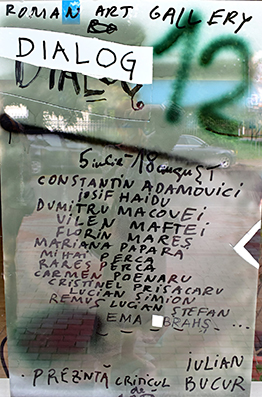 ROMAN ART GALLERY
DIALOG
DIALOG
12
5 iulie - 18 august
CONSTANTIN ADAMOVICI
IOSIF HAIDU
DUMITRU MACOVEI
VILEN MAFTEI
FLORIN MAREȘ
MARIANA PAPARĂ
MIHAI PERCA
RAREȘ PERCA
CARMEN POENARU
CRISTINEL PRISACARU
LUCIAN SIMION
REMUS LUCIAN ȘTEFAN
EMA
PREZINTĂ CRITICUL
de
IULIAN
BUCUR